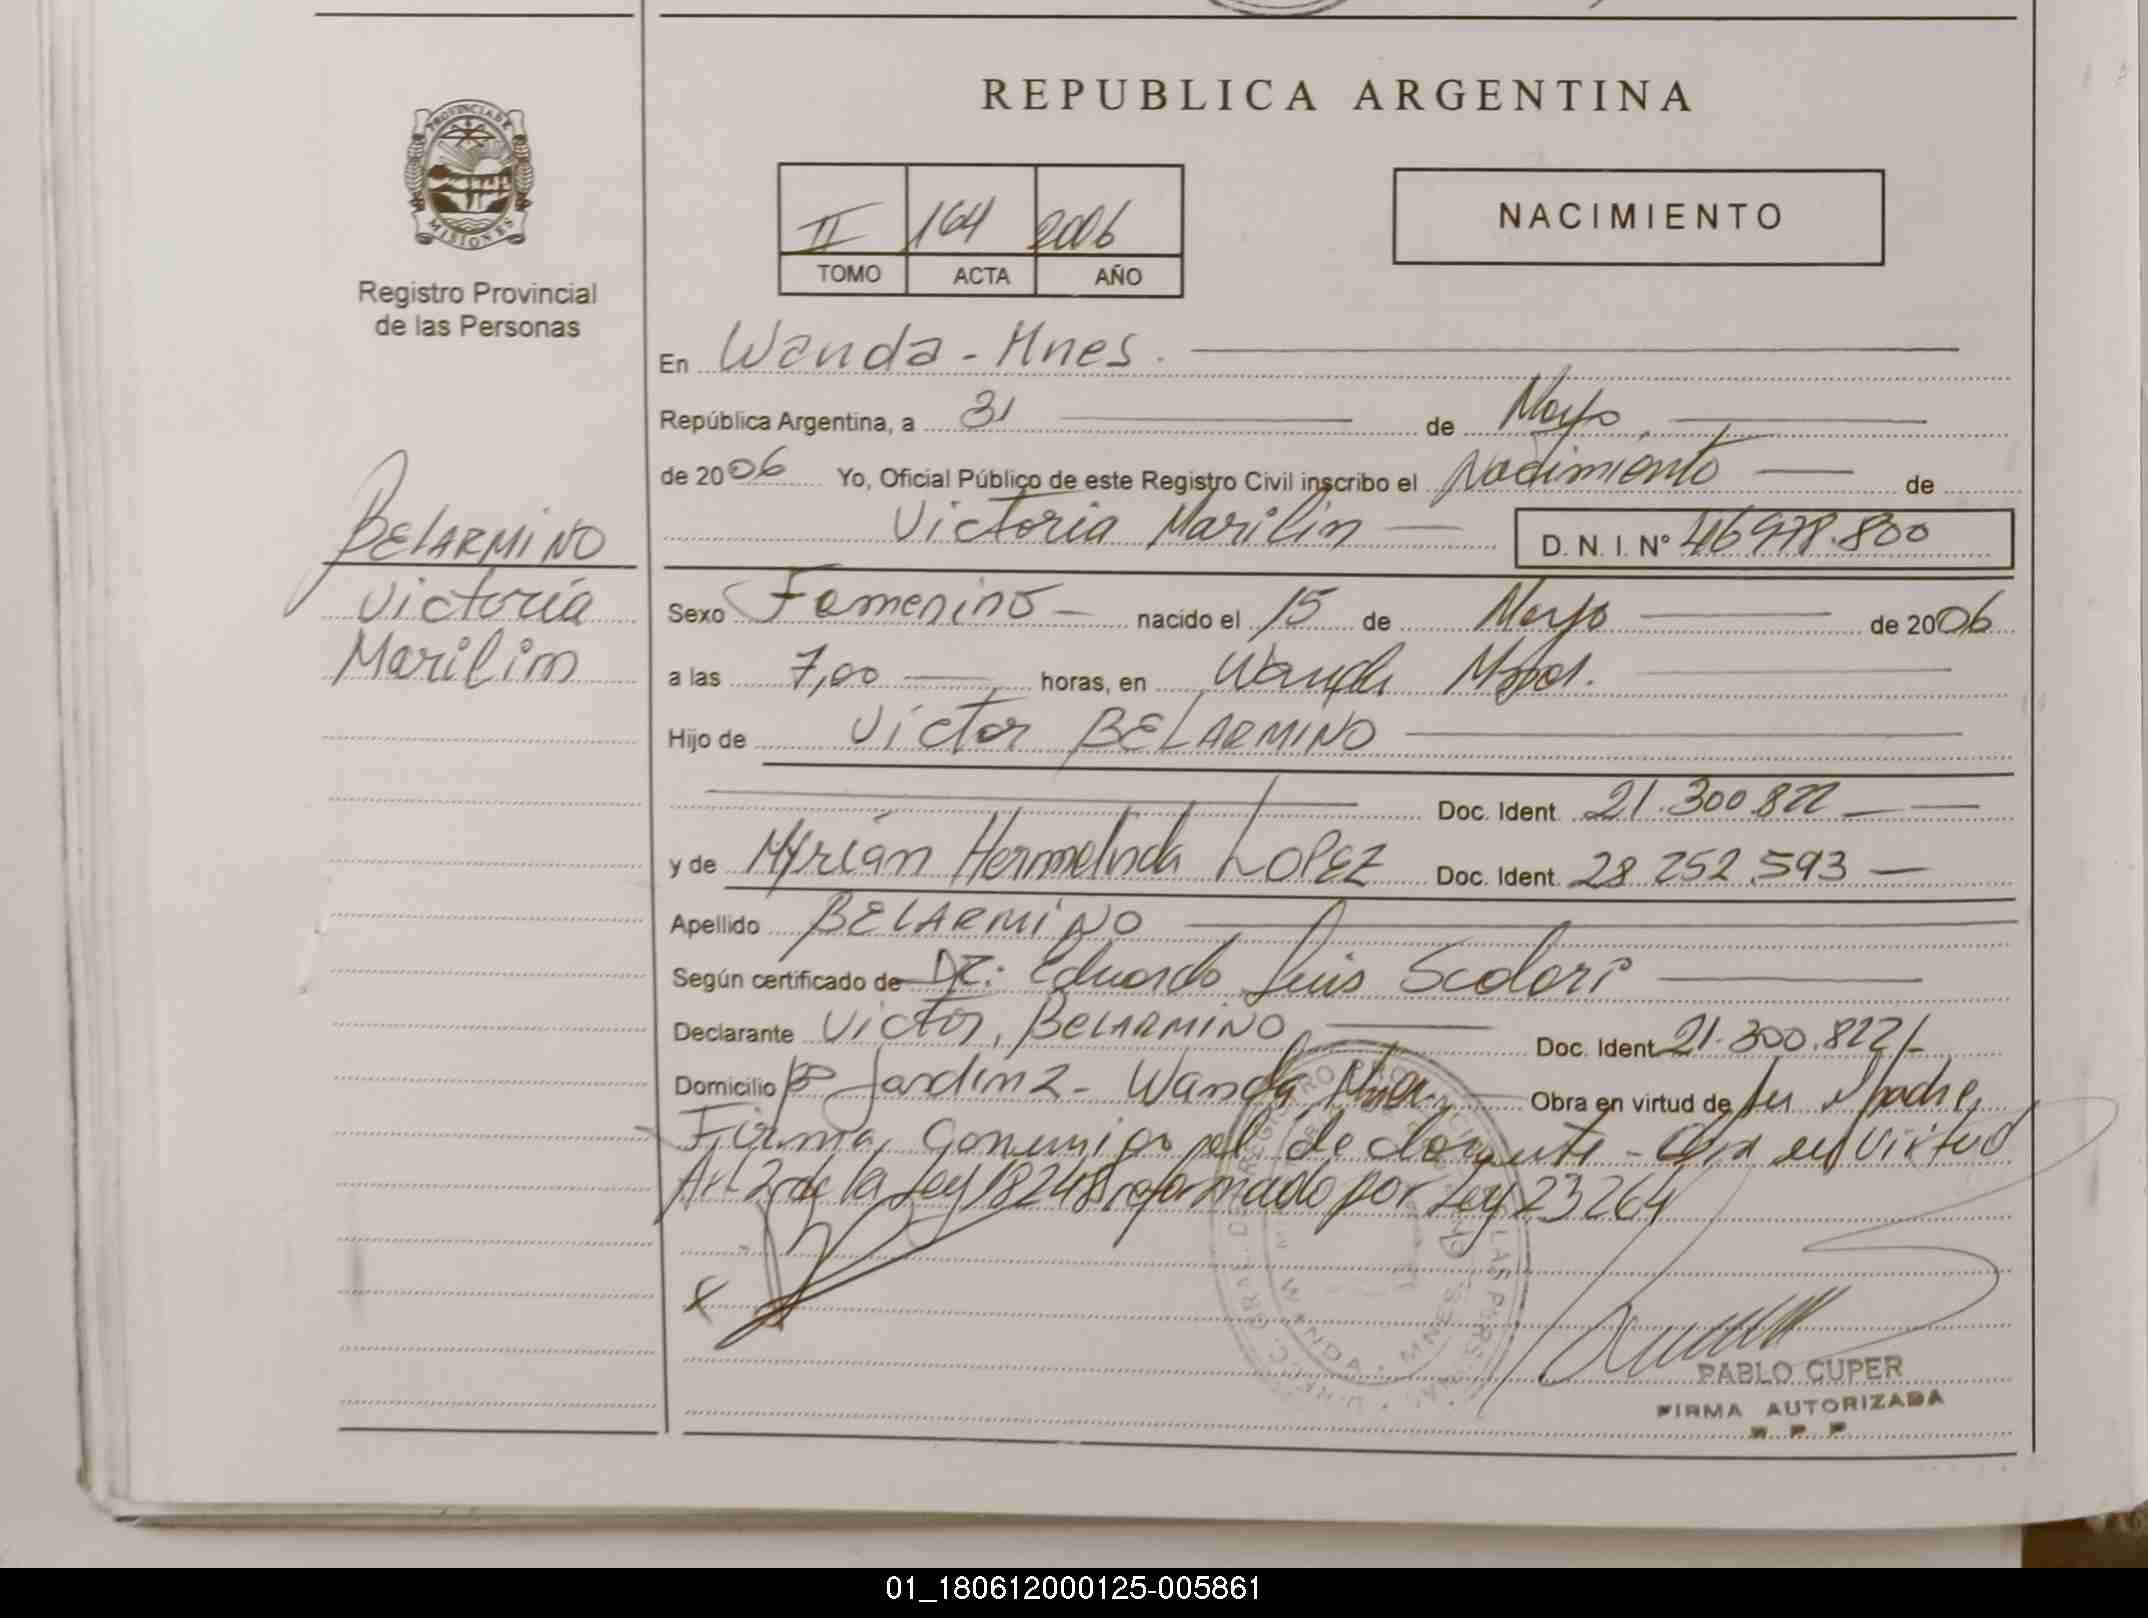 REPUBLICA ARGENTINA
PROVINCIA DE
MISIONES
Registro Provincial
de las Personas
II 164 2006
TOMO ACTA AÑO
NACIMIENTO
En Wanda - Mnes.
República Argentina, a 31 de Mayo
de 2006 Yo, Oficial Público de este Registro Civil inscribo el Nacimiento de
Victoria Marilin D. N. I. Nº 46978.800
BELARMINO
Victoria
Marilin
Sexo Femenino nacido el 15 de Mayo de 2006
a las 7,00 horas, en Wanda
Hijo de Victor BELARMINO
Doc. Ident. 21.300.822
y de Myrian Hermelinda LOPEZ Doc. Ident. 28.252.593
Apellido BELARMINO
Según certificado de Dr. Eduardo Luis Scolari
Declarante Victor, BELARMINO Doc. Ident. 21.300.822
Domicilio Bº Jardin 2 - Wanda Obra en virtud de
Firma, conmigo el declarante - Obra en virtud
Art 2 de la Ley 18248 reformado por Ley 23264
x
WANDA - MNES
PABLO CUPER
FIRMA AUTORIZADA
R. P. P.
01_180612000125-005861